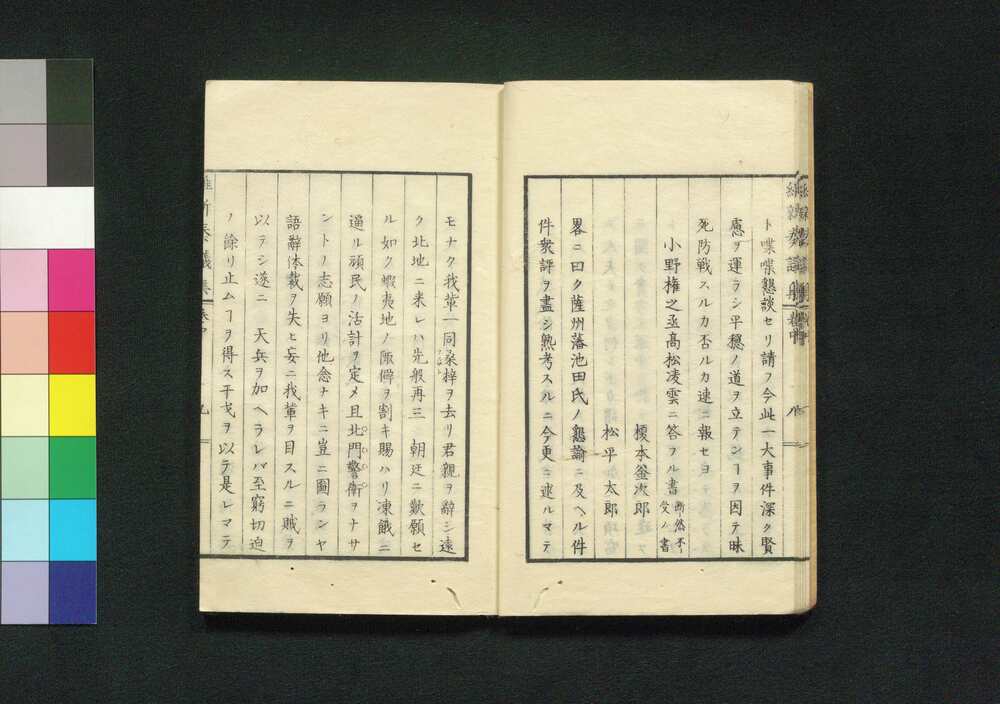 ト喋喋懇談セリ請フ今此一大事件深ク賢
慮ヲ運ラシ平穏ノ道ヲ立テンヿヲ因テ昧
死防戦スルカ否ルカ速ニ報セヨ
小野権之丞高松凌雲ニ答フル書
断然不
文ノ書
榎本釜次郎
松平太郎
畧ニ曰ク薩州藩池田氏ノ懇諭ニ及ヘル件
件衆評ヲ盡シ熟考スルニ今更ニ逮ルマテ
モナク我輩一同桑梓ヲ去リ君親ヲ辭シ遠
ク北地ニ来レハ先般再三 朝廷ニ歎願セ
ル如ク蝦夷地ノ
ヲ割キ賜ハリ凍餓ニ
逼ル頑民ノ活計ヲ定メ且北門警衛ヲナサ
ントノ志願ヨリ他念ナキニ豈ニ圖ランヤ
語辭体裁ヲ失ヒ妄ニ我輩ヲ目スルニ賊ヲ
以テシ遂ニ 天兵ヲ加ヘラレバ至窮切迫
ノ餘リ止ムヿヲ得ス干戈ヲ以テ是レマテ